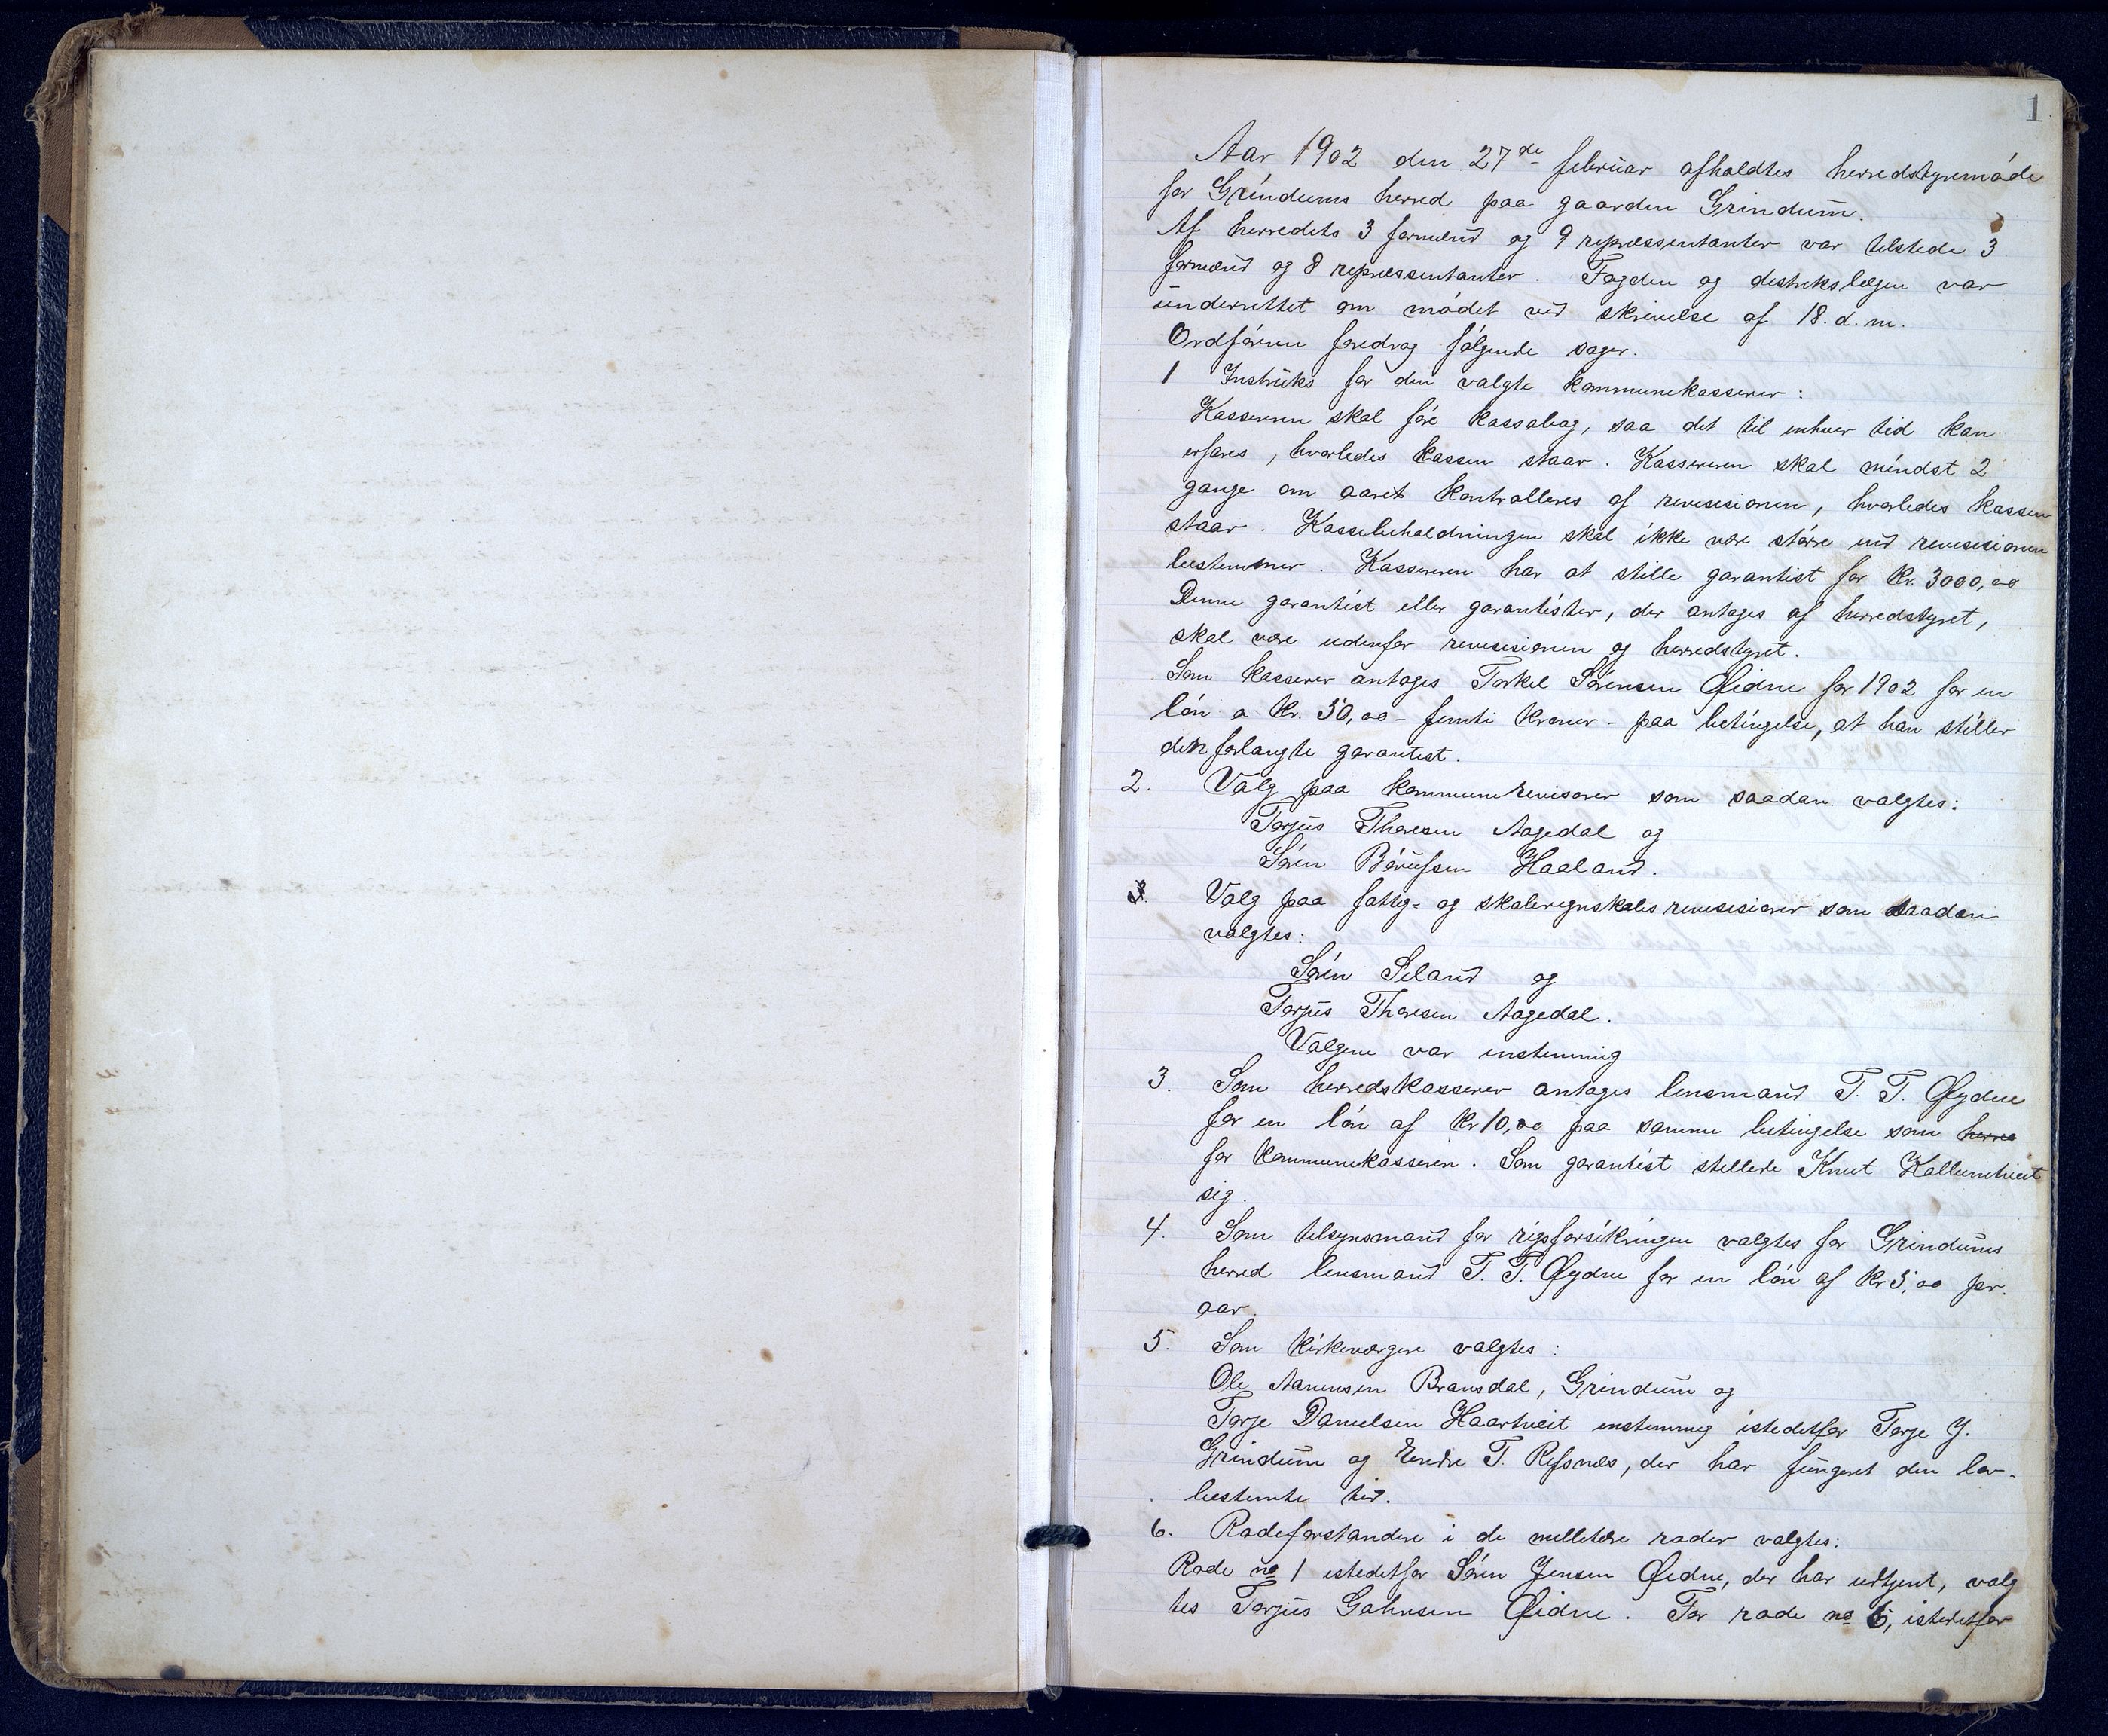 1
Aar 1902 den 27de februar afholdtes herredstyremøde
for Grindums herred paa gaarden Grindum.
Af herredets 3 formænd og 9 repræssentanter var tilstede 3
formænd og 8 repræssentanter. Fogden og destrikslægen var
underrettet om mødet ved skrivelse af 18. d. m.
Ordføreren foredrog følgende sager.
1 Instruks for den valgte kommunekasserer:
Kassereren skal føre kassabog, saa det til enhver tid kan
erfares, hvorledes kassen staar. Kassereren skal mindst 2
gange om aaret kontrolleres af revesisionen, hvorledes kassen
staar. Kassebeholdningen skal ikke være større end revesisionen
bestemmer. Kassereren har at stille garantist for Kr. 3000,00
Denne garantist eller garantister, der antages af herredstyret,
skal være udenfor revesisionen og herredstyret.
Som kasserer antages Torkel Sørensen Øidne for 1902 for en
løn a Kr. 50,00 - femti kroner - paa betingelse, at han stiller
den forlangte garantist.
2. Valg paa kommunerevisorer som saadan valgtes:
Torjus Thoresen Aagedal og
Søren Haaland.
3. Valg paa fattig- og skoleregnskabs revesisiorer som saadan
valgtes:
Søren Seland og
Torjus Thoresen Aagedal.
Valgene var enstemmig
3. Som herredskasserer antages lensmand T. T. Øydne
for en løn af Kr 10,00 paa samme betingelse som herre
for kommunekasseren. Som garantist stillede Knut Kallumtveit
sig.
4. Som tilsynsmand for rigsforsikringen valgtes for Grindums
herred lensmand T. T. Øydne for en løn af Kr 5,00 par.
aar.
5. Som kirkeværgere valgtes:
Ole Aanensen Bransdal, Grindum og
Torje Danielsen Haartveit enstemmig istedetfor Torje J.
Grindum og Endre T. Refsnes, der har fungeret den lov-
bestemte tid.
6. Rodeforstandere i de melletære roder valgtes:
Rode no 1 istedetfor Søren Jensen Øidne, der har udtjent, valg
tes Torjus Øidne. For rode no 6, istedetfor